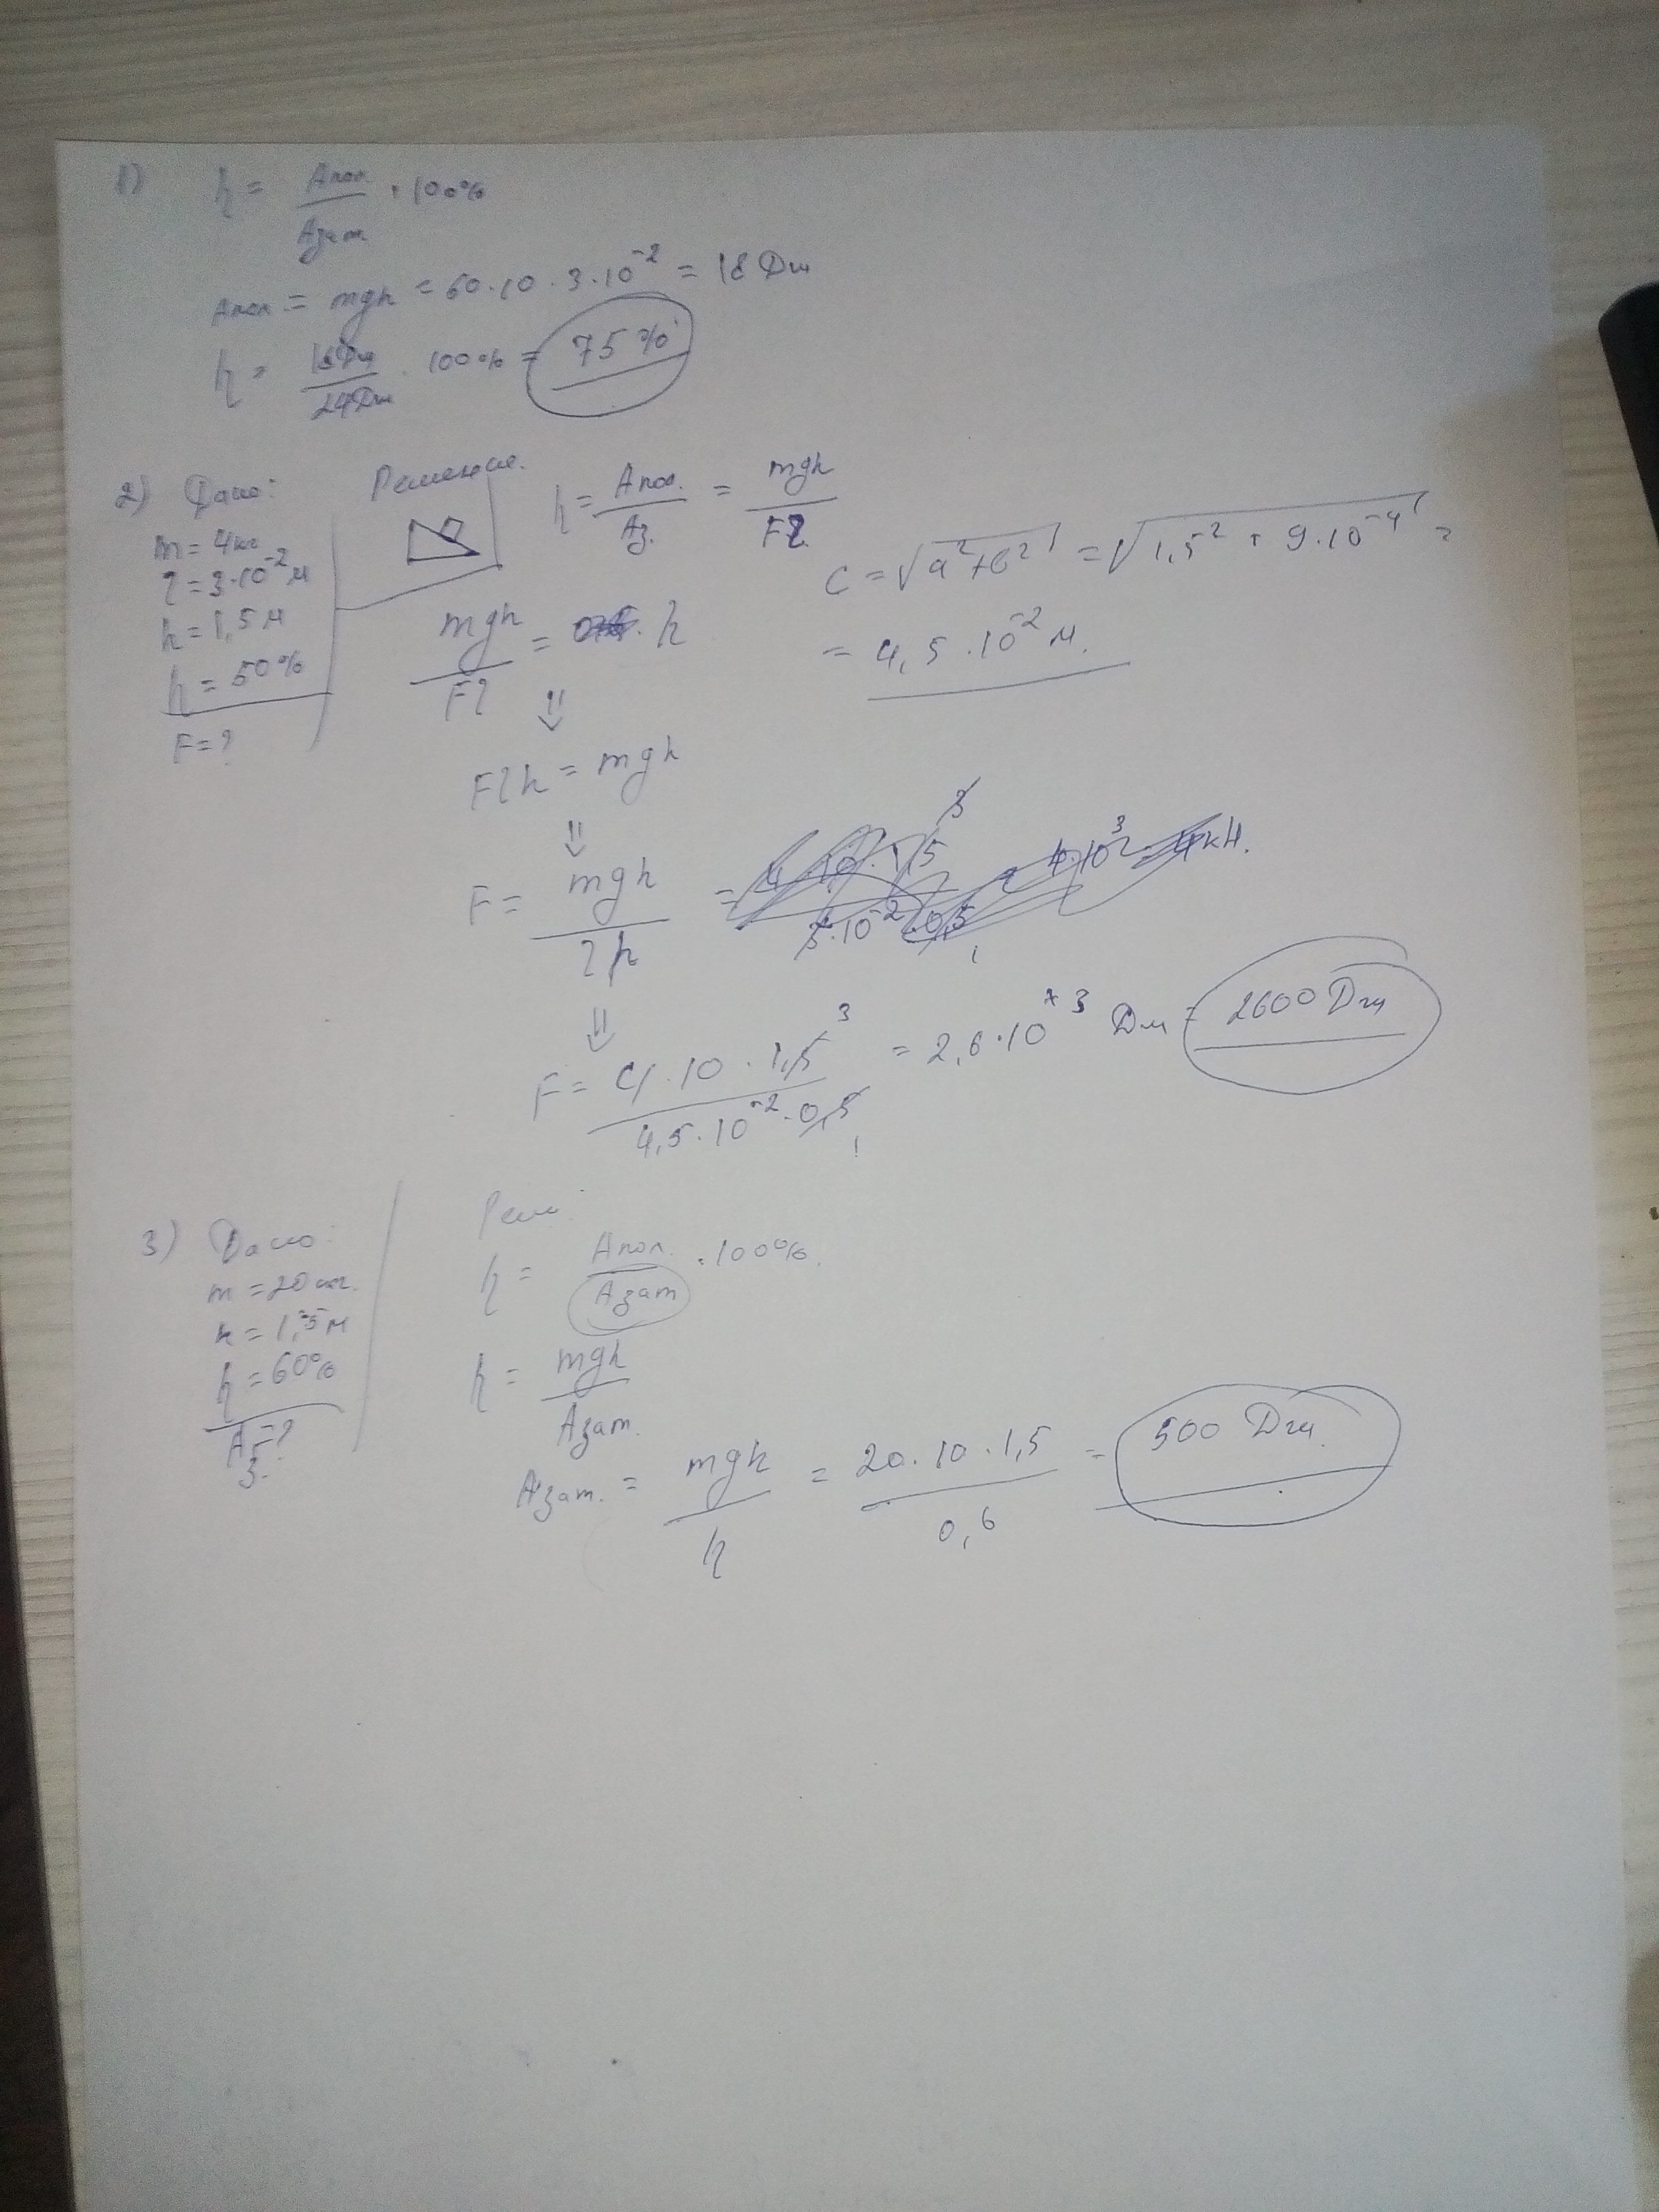 1) η = Aпол. / Aзат. · 100%
Aпол = mgh = 60·10·3·10⁻² = 18 Дж
η = 18Дж / 24Дж · 100% = 75%
2) Дано: Решение.
m = 4кг
l = 3·10⁻² м
h = 1,5 м
η = 50%
F = ?
η = Aпол. / Aз. = mgh / Fl
c = √(a²+b²) = √(1,5² + 9·10⁻⁴) =
= 4,5·10⁻² м.
mgh / Fl = η
⇓
Flη = mgh
⇓
F = mgh / lη =
⇓
F = 4·10·1,5 / 4,5·10⁻²·0,5 = 2,6·10³ Дж = 2600 Дж
3) Дано: Реш
m = 20 кг.
η = 60%
Aз. = ?
η = Aпол. / Aзат · 100%.
η = mgh / Aзат.
Aзат. = mgh / η = 20·10·1,5 / 0,6 = 500 Дж